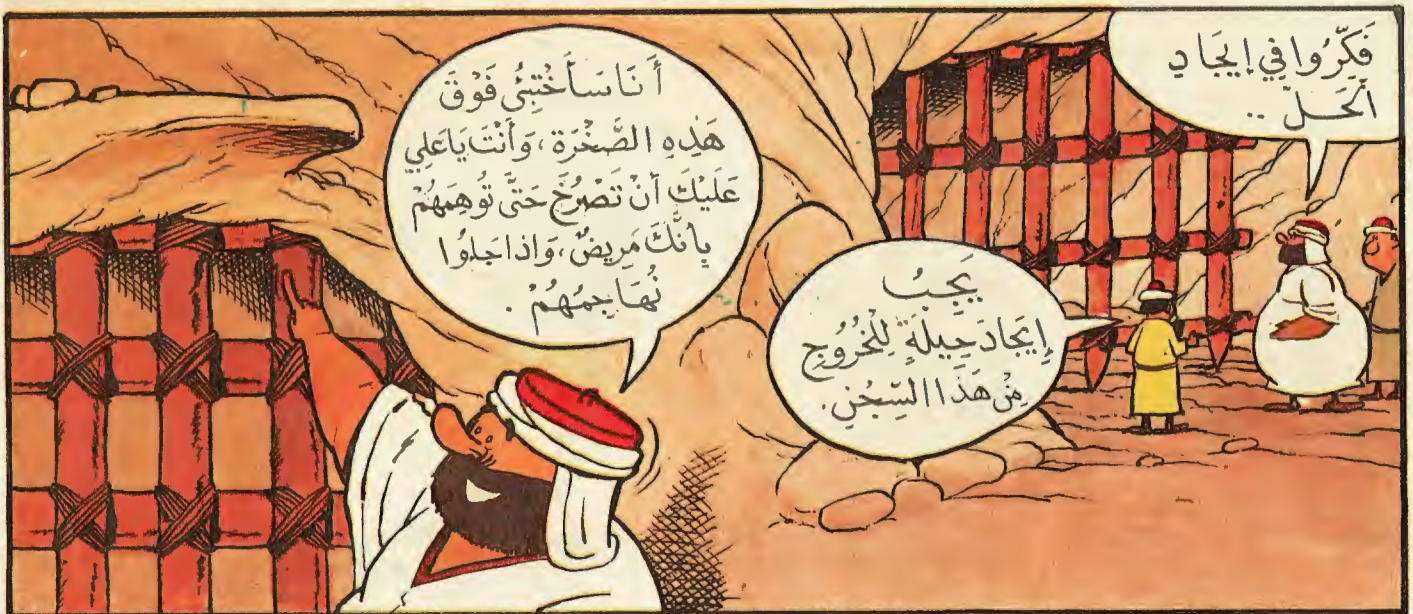 فَكِّرُوا فِي إيجَادِ
أَلحَلّ ..
يَجِبُ
إِيجَادَ حِيلَةٍ لِلْخُرُوجِ
مِنْ هَذَا السِّجْنِ.
أَنَا سَأَخْتَبِئُ فَوْقَ
هَذِهِ الصَّخْرَة، وَأَنْتَ يَاعَلِي
عَلَيْكَ أَنْ تَصْرُخَ حَتَّى تُوهِمَهُمْ
بِأَنَّكَ مَرِيضٌ، وَاذا جَاؤُوا
نُهَاجِمُهُمْ.